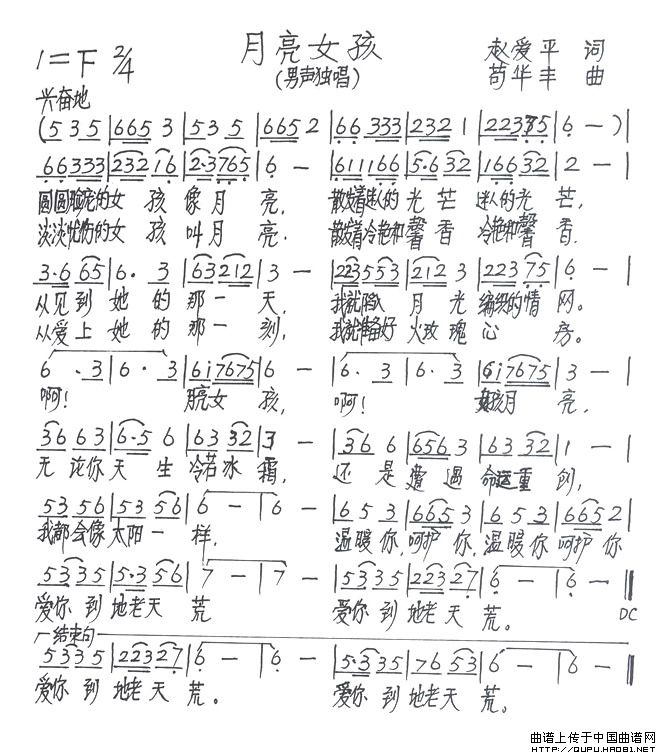 月亮女孩
(男声独唱)
赵爱平 词
苟华丰 曲
1=F 2/4
兴奋地
(5 3 5 | 6 6 5 3 | 5 3 5 | 6 6 5 2 | 6 6 3 3 3 | 2 3 2 1 | 2 2 3 7 5 | 6 - ) |
6 6 3 3 3 | 2 3 2 1 6 | 2·3 7 6 5 | 6 - | 6 1 1 1 6 6 | 5·6 3 2 | 1 6 6 3 2 | 2 - |
圆圆脸蛋的女孩像月亮, 散发着迷人的光芒 迷人的光芒,
淡淡忧伤的女孩叫月亮. 散发着冷艳和馨香 冷艳和馨香,
3·6 6 5 | 6· 3 | 6 3 2 1 2 | 3 - | 2 2 3 5 5 3 | 2 1 2 3 | 2 2 3 7 5 | 6 - |
从见到她的那一天, 我就陷入月光编织的情网。
从爱上她的那一刻, 我就准备好火玫瑰心房。
6 · 3 | 6 · 3 | 6 1 7 6 7 5 | 6 - | 6· 3 | 6· 3 | 6 1 7 6 7 5 | 3 - |
啊! 月亮女孩, 啊! 女孩月亮,
3 6 6 3 | 6·5 6 | 6 3 3 2 | 3 - | 3 6 6 | 6 5 6 3 | 6 3 3 2 | 1 - |
无论你天生冷若冰霜, 还是遭遇命运重创,
5 3 5 6 | 5 3 5 6 | 6 - | 6 - | 6 5 3 | 6 6 5 3 | 6 5 3 | 6 6 5 2 |
我都会像太阳一样, 温暖你,呵护你,温暖你呵护你
5 3 3 5 | 5·3 5 6 | 7 - | 7 - | 5 3 3 5 | 2 2 3 2 7 | 6 - | 6 - ‖
爱你到地老天荒 爱你到地老天荒。 DC
结束句
5 3 3 5 | 2 2 3 2 7 | 6 - | 6 - | 5·3 3 5 | 7 6 5 3 | 6 - | 6 - ‖
爱你到地老天荒。 爱你到地老天荒。
曲谱上传于中国曲谱网
HTTP://QUPU.HAO81.NET